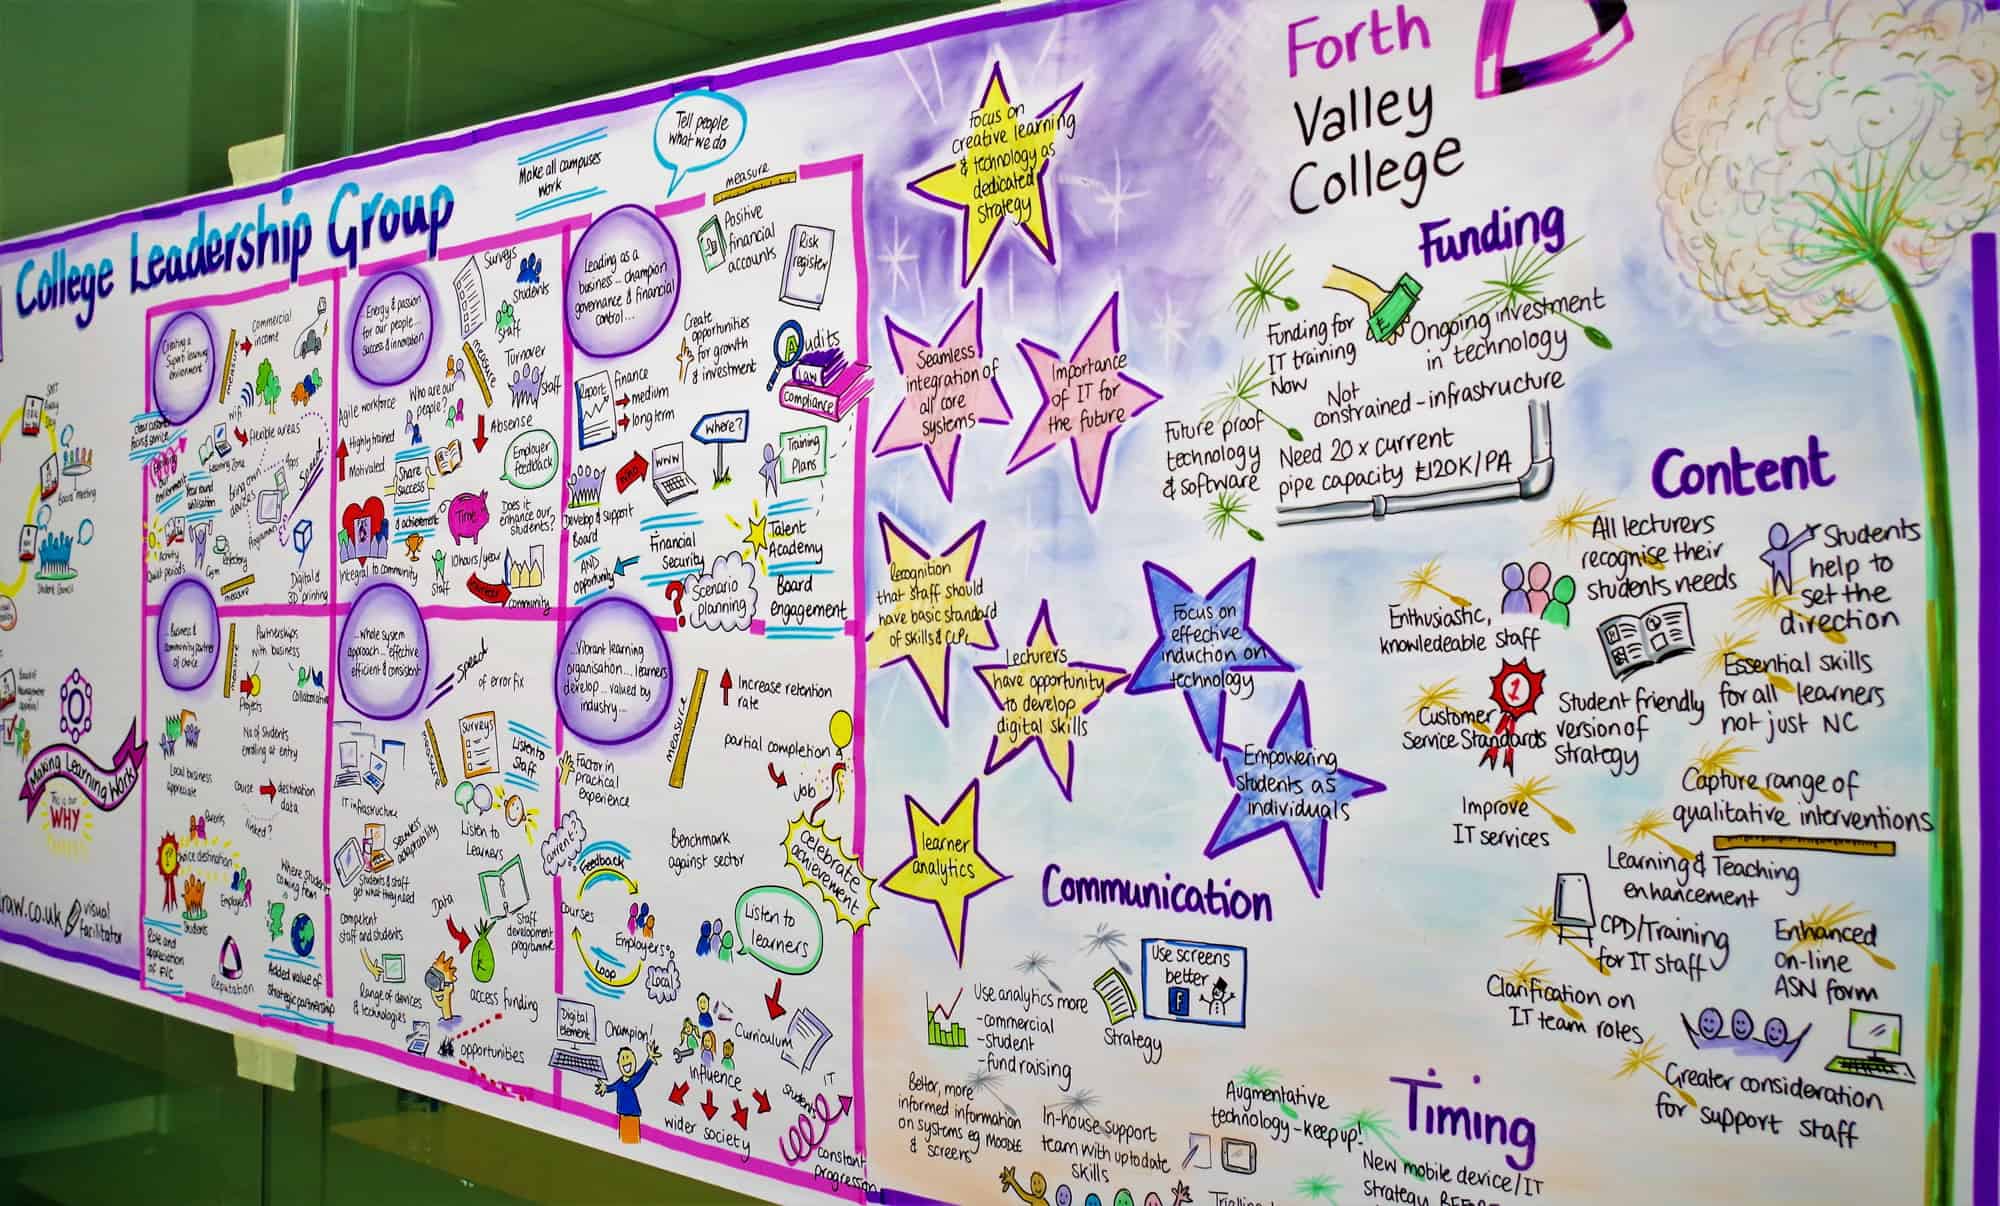 College Leadership Group
Make all campuses
work
Tell people
what we do
Creating a
Superb learning
environment
measure
Commercial
income
wifi
flexible areas
Learning Zone
Bring own
devices
Apps
Speed
Year round
utilisation
Activity
Quiet periods
Gym
Refectory
Programmes
Digital &
3D printing
measure
Energy & passion
for our people...
success & innovation
Surveys
Students
Staff
measure
Turnover
Staff
Agile workforce
Who are our
people?
Highly trained
Motivated
Absense
Share
success
& achievement
Employer
feedback
Time
Does it
enhance our
students?
10 hours/year
Staff
Integral to community
community
Leading as a
business... champion
governance & financial
control...
measure
Positive
financial
accounts
Risk
register
Create
opportunities
for growth
& investment
Report
finance
medium
long term
Audits
LAW
Compliance
where?
WWW
Who
Training
Plans
Develop & support
Board
AND
opportunity
Financial
Security
Talent
Academy
Scenario
planning
Board
engagement
...Business &
community partner
of choice
measure
Partnerships
with business
Projects
Collaborative
No of Students
enrolling at entry
Local business
appreciate
Course
destination
data
linked?
Parents
Choice destination
Employers
Students
Where students
coming from
Role and
appreciation
of FVC
Reputation
Added value of
strategic partnership
...Whole system
approach... effective
efficient & consistent
Speed
of error fix
measure
Surveys
Listen to
Staff
IT infrastructure
Seamless
adaptability
Listen to
Learners
Students & staff
get what they need
Data
Competent
staff and students
Staff
development
programme
Range of devices
& technologies
access funding
opportunities
...Vibrant learning
organisation... learners
develop... valued by
industry...
measure
Increase retention
rate
partial completion
job
Factor in
practical
experience
Current?
Benchmark
against sector
Celebrate
achievement
Feedback
Courses
Employers
Loop
Local
Listen to
learners
Digital
Element
Champion!
Curriculum
Influence
wider society
Student
IT
constant
progression
Board meeting
Student Council
Making Learning Work
This is our
WHY
raw.co.uk
visual
facilitator
Focus on
creative learning
& technology as
dedicated
strategy
Seamless
integration of
all core
systems
Importance
of IT for
the future
Recognition
that staff should
have basic standard
of skills & CLPL
Lecturers
have opportunity
to develop
digital skills
Focus on
effective
induction on
technology
Empowering
students as
individuals
learner
analytics
Forth
Valley
College
Funding
Funding for
IT training
Now
Ongoing investment
in technology
Not
constrained - infrastructure
Future proof
technology
& software
Need 20 x current
pipe capacity £120K/PA
Content
All lecturers
recognise their
students needs
Students
help to
set the
direction
Enthusiastic,
knowledeable staff
Essential skills
for all learners
not just NC
1
Customer
Service Standards
Student friendly
version of
strategy
Improve
IT services
Capture range of
qualitative interventions
Learning & Teaching
enhancement
CPD/Training
for IT staff
Enhanced
on-line
ASN form
Clarification on
IT team roles
Greater consideration
for support staff
Communication
Use analytics more
- commercial
- student
- fundraising
Strategy
Use screens
better
Better, more
informed information
on systems eg MOODLE
& screens
In-house support
team with up to date
skills
Augmentative
technology - keep up!
Timing
New mobile device/IT
Strategy BEFORE